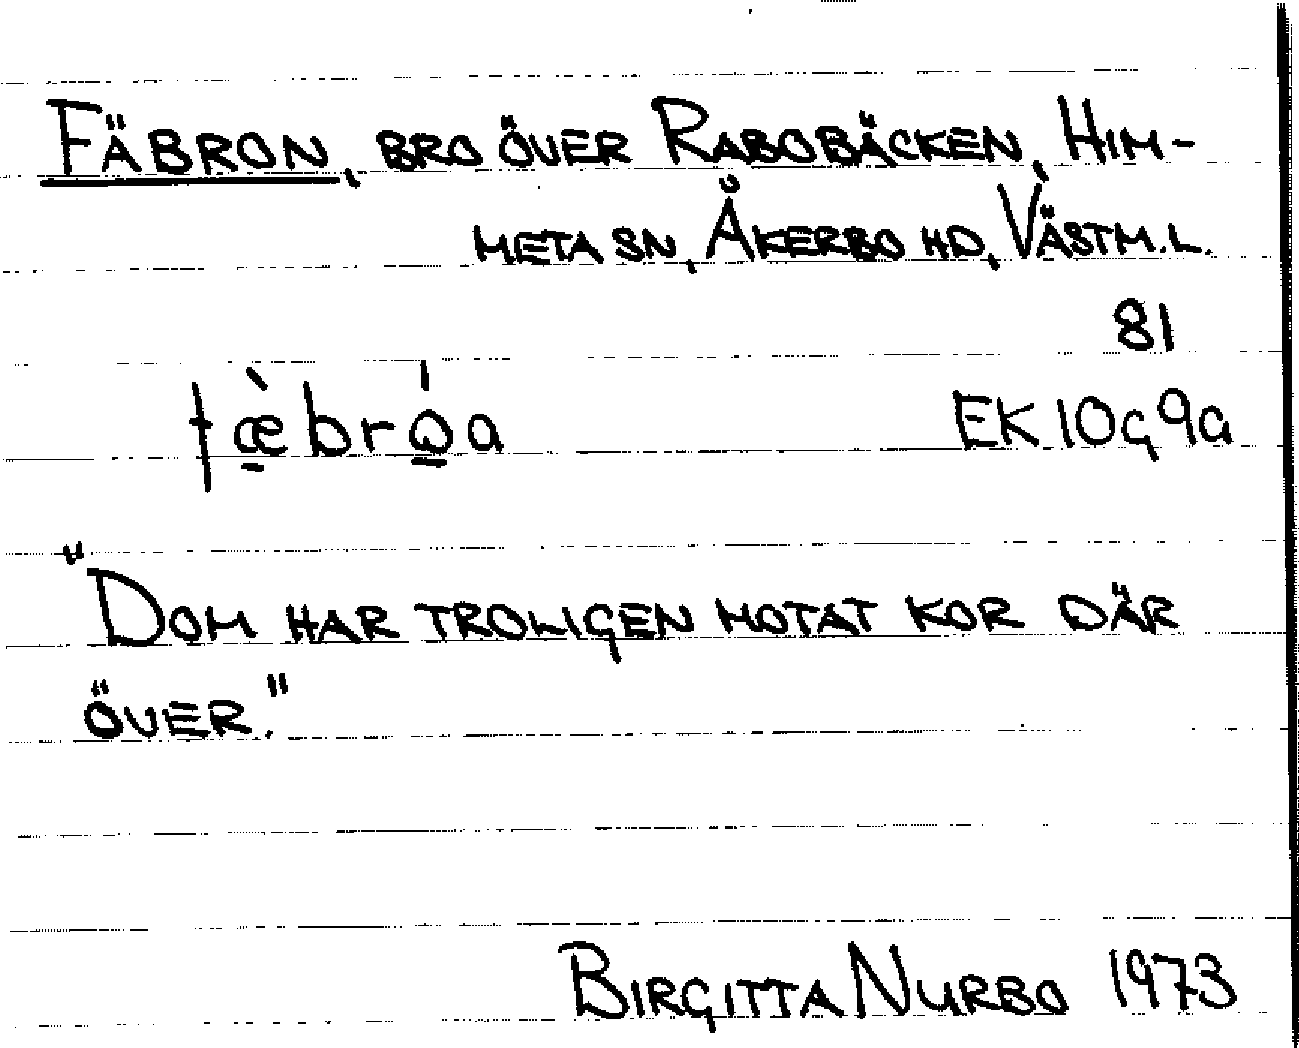 FÄBRON, BRO ÖVER RABOBÄCKEN, HIM-
META SN, ÅKERBO HD, VÄSTM.L.
81
fæ̱̀brώ̱a EK 10g9a
"DOM HAR TROLIGEN MOTAT KOR DÄR
ÖVER."
BIRGITTA NURBO 1973